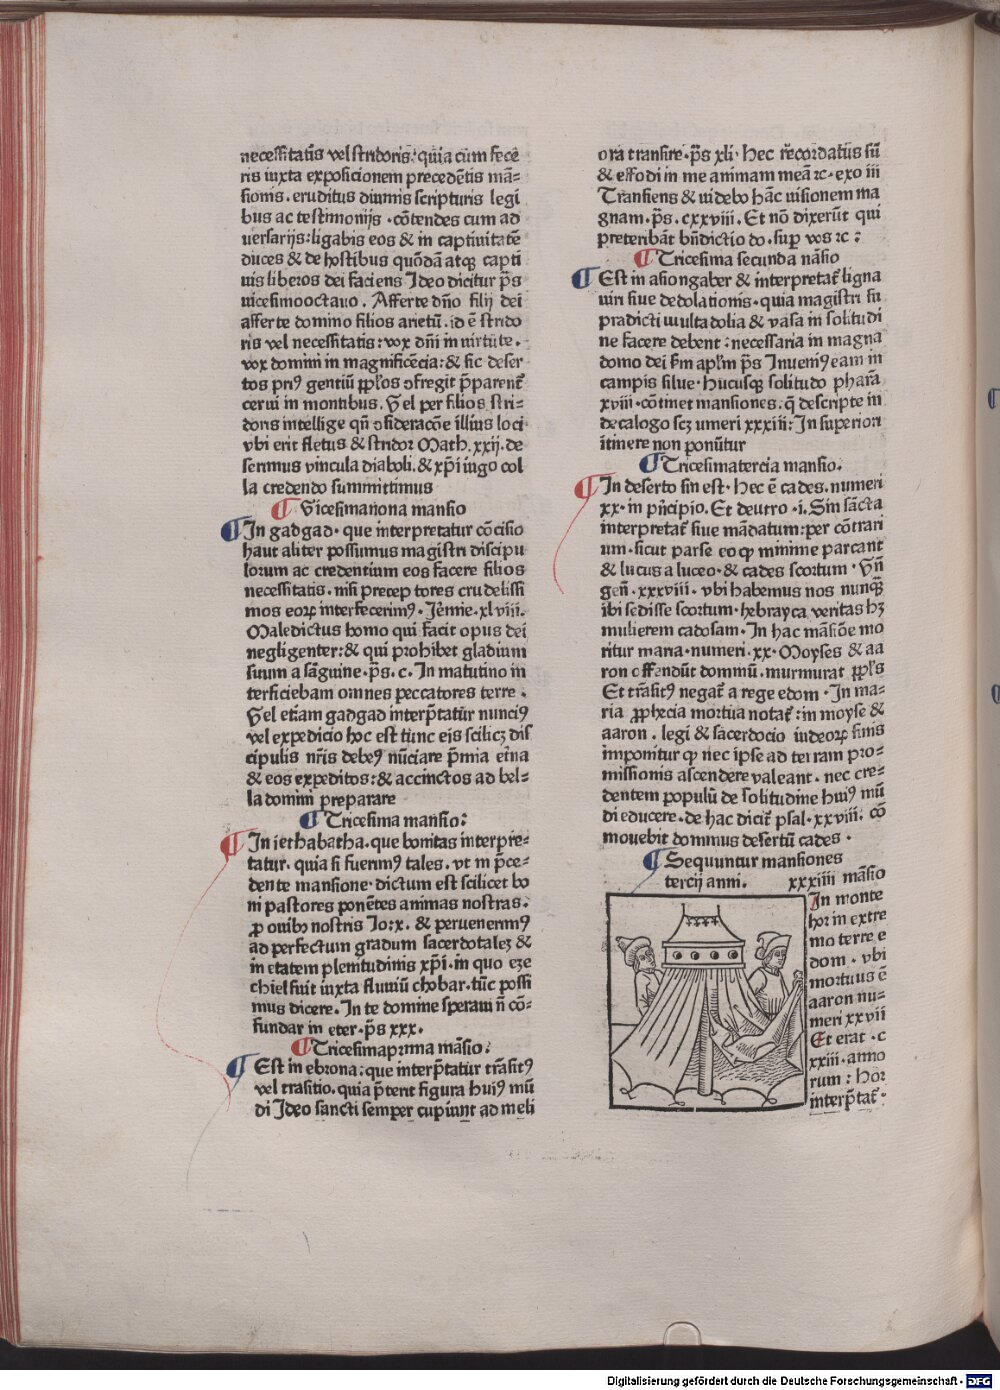 necessitatis vel stridoris: quia cum fece
ris iuxta exposicionem precedētis mā-
sionis. eruditus diuinis scripturis legi
bus ac testimonijs. cōtendes cum ad
uersarijs: ligabis eos & in captiuitatē
duces & de hostibus quōdā atq̄ capti
uis liberos dei faciens Ideo dicitur p̄s
vicesimooctauo. Afferte dn̄o filij dei
afferte domino filios arietū. id ē strido
ris vel necessitatis: vox dn̄i in virtute.
vox domini in magnificēcia: & sic deser
tos priꝰ gentiū ppl̄os ꝯfregit p̄parent̄
cerui in montibus. Vel per filios stri-
doris intellige qn̄ ꝯsideracōe illius loci
vbi erit fletus & stridor Math. xxij. de
serimus vincula diaboli. & xp̄i iugo col
la credendo summittimus
¶ Vicesimanona mansio
¶ In gadgad. que interpretatur cōcisio
haut aliter possumus magistri discipu
lorum ac credentium eos facere filios
necessitatis. nisi preceptores crudelissi
mos eorꝝ interfecerimꝰ. Ieremie. xlviij.
Maledictus homo qui facit opus dei
negligenter: & qui prohibet gladium
suum a sāguine. p̄s. c. In matutino in
terficiebam omnes peccatores terre.
Vel etiam gadgad interp̄tatur nunciꝰ
vel expedicio hoc est tunc eis scilicꝫ dis
cipulis nr̄is debeꝰ nūciare p̄mia et̄na
& eos expeditos: & accinctos ad bel-
la domini preparare
¶ Tricesima mansio:
¶ In iethabatha. que bonitas interpre-
tatur. quia si fuerimꝰ tales. vt in p̄ce-
dente mansione dictum est scilicet bo
ni pastores ponētes animas nostras.
ꝓ ouibꝰ nostris Io: x. & peruenerimꝰ
ad perfectum gradum sacerdotaleꝫ &
in etatem plenitudinis xp̄i. in quo eze
chiel fuit iuxta fluuiū chobar. tūc possi
mus dicere. In te domine speraui n̄ cō-
fundar in eter. p̄s xxx.
¶ Tricesimaprima māsio:
¶ Est in ebrona: que interp̄tatur trāsitꝰ
vel trāsitio. quia p̄terit figura huiꝰ mū
di Ideo sancti semper cupiunt ad meli
ora transire. p̄s xli. Hec recordatus sū
& effodi in me animam meā ꝛc. exo iii
Transiens & uidebo hāc uisionem ma
gnam. p̄s. cxxviii. Et nō dixerūt qui
preteribāt bn̄dictio do. sup̄ vos ꝛc:
¶ Tricesima secunda māsio
¶ Est in asiongaber & interpretat̄ ligna
uiri siue dedolationis. quia magistri su
pradicti multa dolia & vasa in solitudi
ne facere debent: necessaria in magna
domo dei s̄m apl̄m p̄s Inuenimꝰ eam in
campis silue. hucusqꝫ solitudo pharā
xviii. cōtinet mansiones. q̄ descripte in
decalogo scꝫ numeri xxxiii: In superiori
itinere non ponūtur
¶ Tricesimatercia mansio.
¶ In deserto sin est. hec ē cades. numeri
xx. in pn̄cipio. Et deutro. i. Sin sācta
interpretat̄ siue mādatum: per cōtrari
um. sicut parse eo ꝙ minime parcant
& lucus a luceo. & cades scortum. Vn̄
gen̄. xxxviii. vbi habemus nos nunqꝫ
ibi sedisse scortum. hebrayca veritas hꝫ
mulierem cadosam. In hac māsiōe mo
ritur maria. numeri. xx. Moyses & aa
ron offendūt dominū. murmurat ppl̄s
Et trāsitꝰ negat̄ a rege edom. In ma-
ria ꝓphecia mortua notat̄: in moyse &
aaron. legi & sacerdocio iudeorꝝ finis
imponitur ꝙ nec ipse ad terram pro-
missionis ascendere valeant. nec cre-
dentem populū de solitudine huiꝰ mū
di educere. de hac dicit̄ psal. xxviii: cō
mouebit dominus desertū cades.
¶ Sequuntur mansiones
tercij anni. xxxiiii māsio
In monte
hor in extre
mo terre e
dom. vbi
mortuus ē
aaron nu-
meri xxvii
Et erat. c
xxiii. anno
rum: Hor
interp̄tat̄.
Digitalisierung gefördert durch die Deutsche Forschungsgemeinschaft - DFG